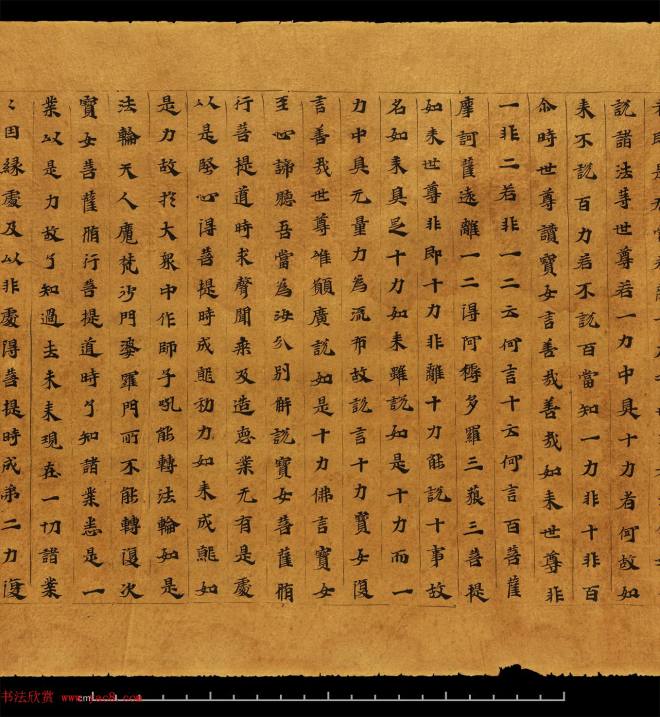 說諸法等世尊若一力中具十力者何故如
来不說百力若不說百當知一力非十非百
尒時世尊讃寶女言善哉善哉如来世尊非
一非二若非一二云何言十云何言百菩薩
摩訶薩遠離一二得阿耨多羅三藐三菩提
如来世尊非即十力非離十力能說十事故
名如来具足十力如来雖說如是十力而一
力中具无量力為流布故說言十力寶女復
言善哉世尊唯願廣說如是十力佛言寶女
至心諦聽吾當為汝分別解說寶女菩薩脩
行菩提道時求聲聞乗及造惡業无有是處
以是堅心得菩提時成就初力如来成就如
是力故於大衆中作師子吼能轉法輪如是
法輪天人魔梵沙門婆羅門所不能轉復次
寶女菩薩脩行菩提道時了知諸業悉是一
業以是力故了知過去未来現在一切諸業
因縁處及以非處得菩提時成弟二力復
书法欣赏
cm